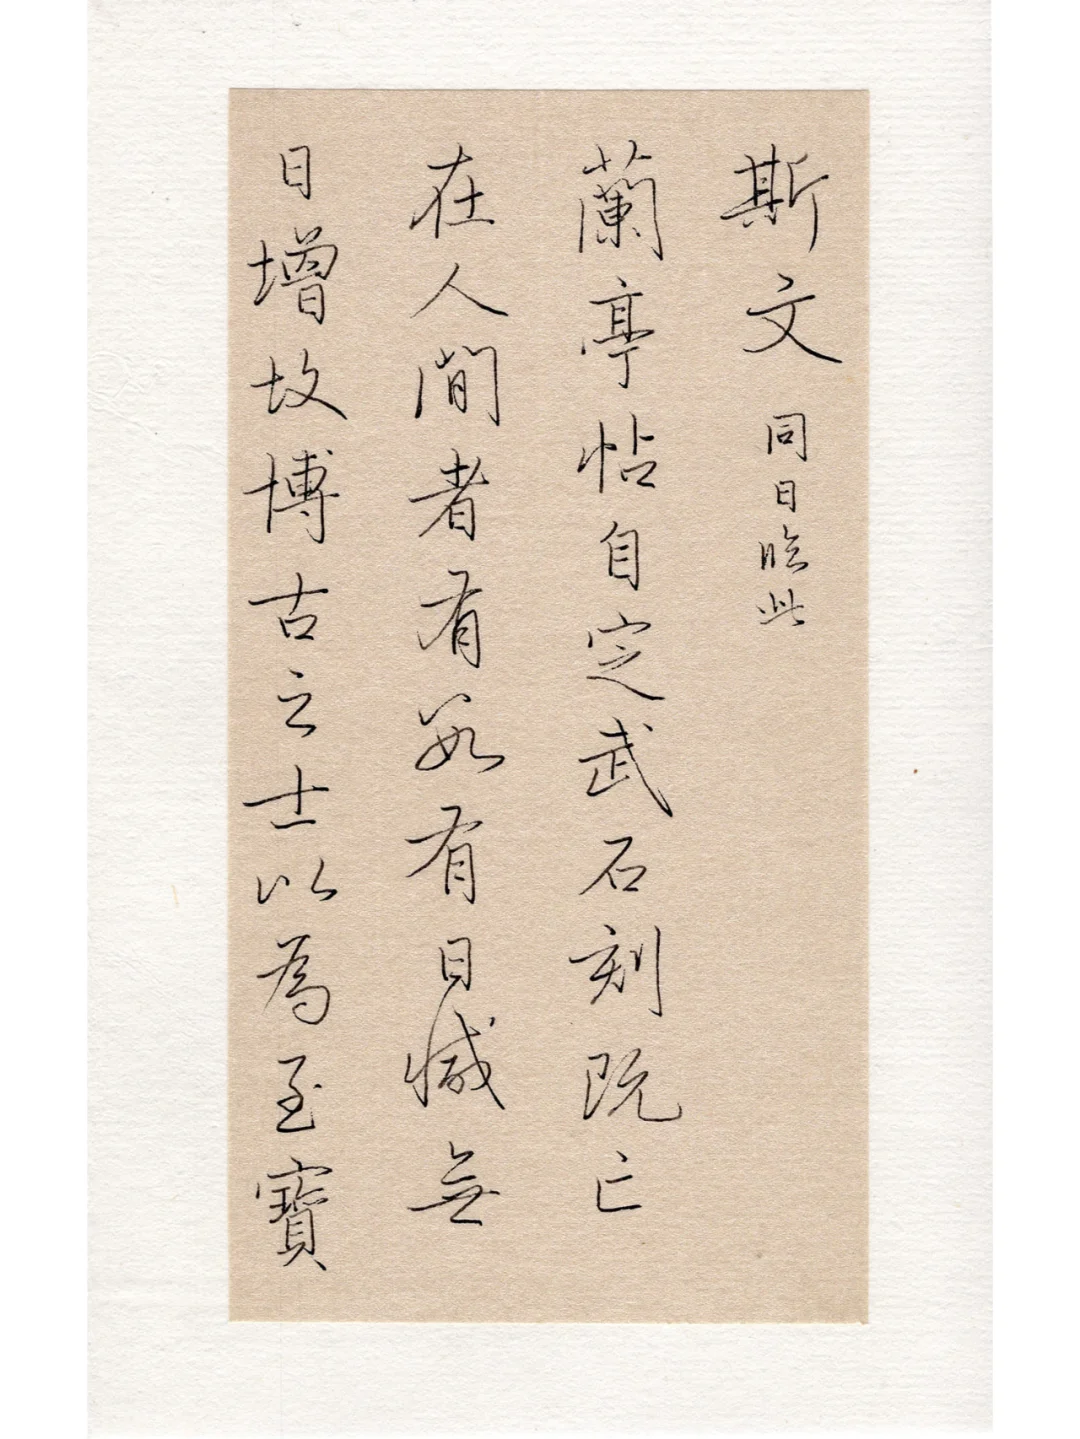 斯文 同日臨此
蘭亭帖自定武石刻既亡
在人間者有數有日減無
日增故博古之士以為至寶